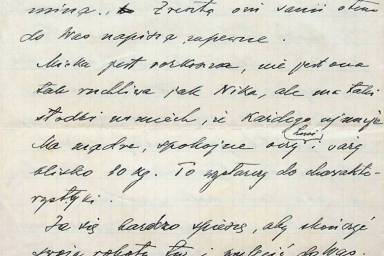 miną. Zresztą oni sami o tem
do Was napiszą zapewne.
Miśka jest rozkoszna, nie jest ona
tak ruchliwa jak Nika, ale ma taki
słodki uśmiech, że każdego ujmuje.
Ma mądre, spokojne oczy i waży
blisko 10 kg. To wystarczy do charakte-
rystyki.
Ja się bardzo spieszę, aby skończyć
swoją robotę tu i do Was.